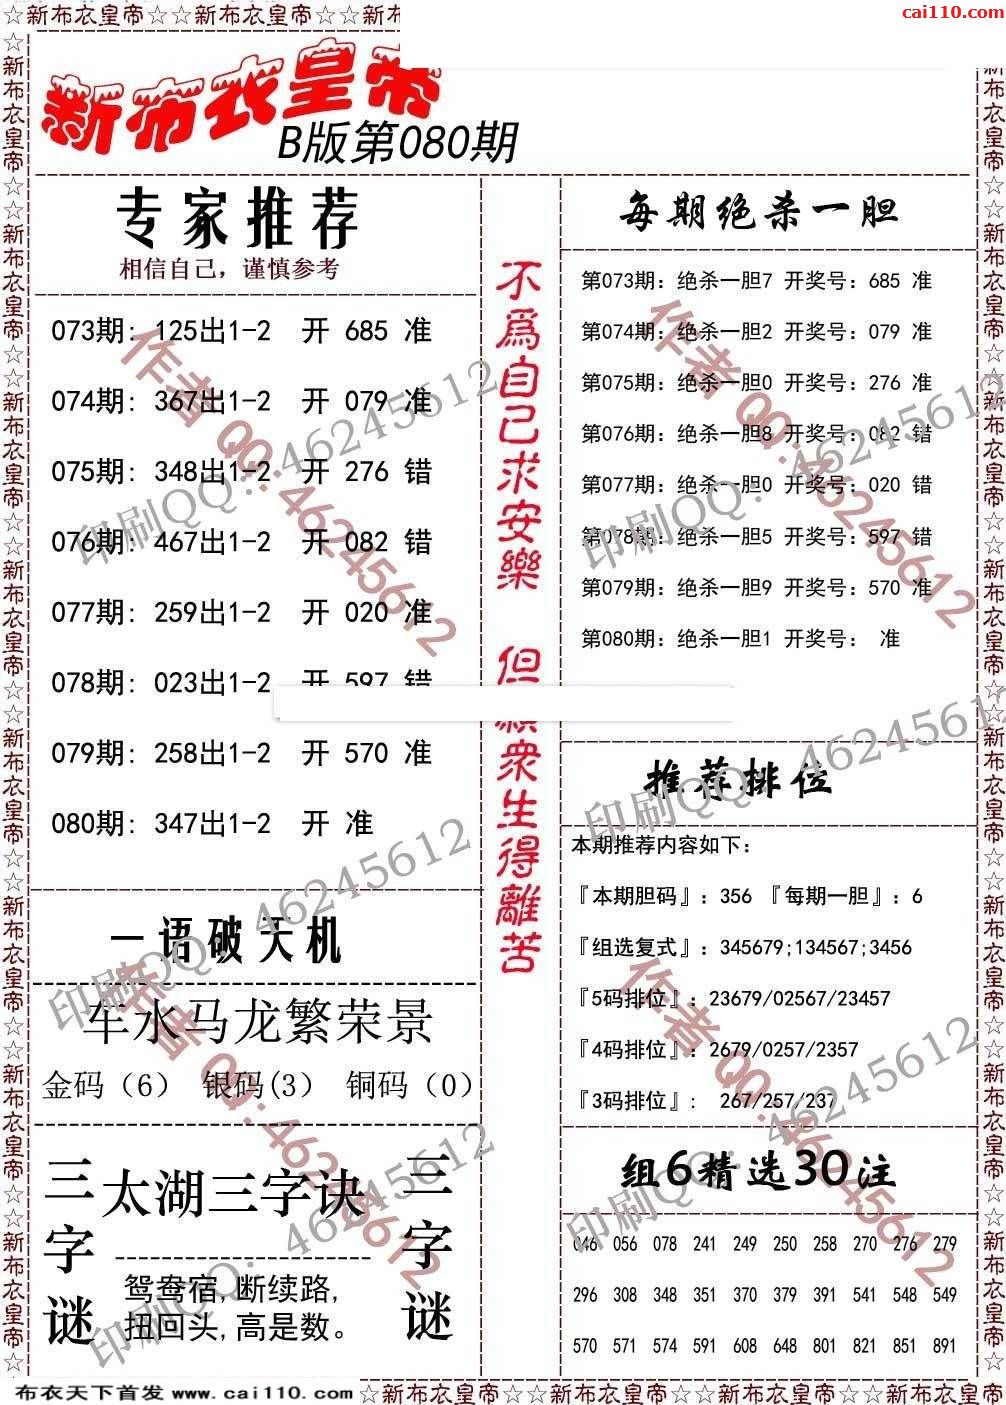 ☆新布衣皇帝☆☆新布衣皇帝☆☆新布
cai110.com
新布衣皇帝
B版第080期
专家推荐
相信自己，谨慎参考
073期: 125出1-2 开 685 准
074期: 367出1-2 开 079 准
075期: 348出1-2 开 276 错
076期: 467出1-2 开 082 错
077期: 259出1-2 开 020 准
078期: 023出1-2 开 597 错
079期: 258出1-2 开 570 准
080期: 347出1-2 开 准
一语破天机
车水马龙繁荣景
金码（6） 银码(3） 铜码（0）
三字谜
太湖三字诀
鸳鸯宿,断续路,
扭回头,高是数。
三字谜
不為自己求安樂 但願衆生得離苦
每期绝杀一胆
第073期: 绝杀一胆7 开奖号: 685 准
第074期: 绝杀一胆2 开奖号: 079 准
第075期: 绝杀一胆0 开奖号: 276 准
第076期: 绝杀一胆8 开奖号: 082 错
第077期: 绝杀一胆0 开奖号: 020 错
第078期: 绝杀一胆5 开奖号: 597 错
第079期: 绝杀一胆9 开奖号: 570 准
第080期: 绝杀一胆1 开奖号: 准
推荐排位
本期推荐内容如下:
『本期胆码』: 356 『每期一胆』: 6
『组选复式』: 345679;134567;3456
『5码排位』: 23679/02567/23457
『4码排位』: 2679/0257/2357
『3码排位』: 267/257/237
组6精选30注
046 056 078 241 249 250 258 270 276 279
296 308 348 351 370 379 391 541 548 549
570 571 574 591 608 648 801 821 851 891
作者 QQ:46245612
印刷QQ: 46245612
作者 QQ:46245612
印刷QQ: 46245612
印刷QQ: 46245612
印刷QQ: 46245612
作者 QQ:46245612
作者 QQ:46245612
印刷QQ: 46245612
印刷QQ: 46245612
布衣天下首发 www.cai110.com
☆新布衣皇帝☆☆新布衣皇帝☆☆新布衣皇帝☆